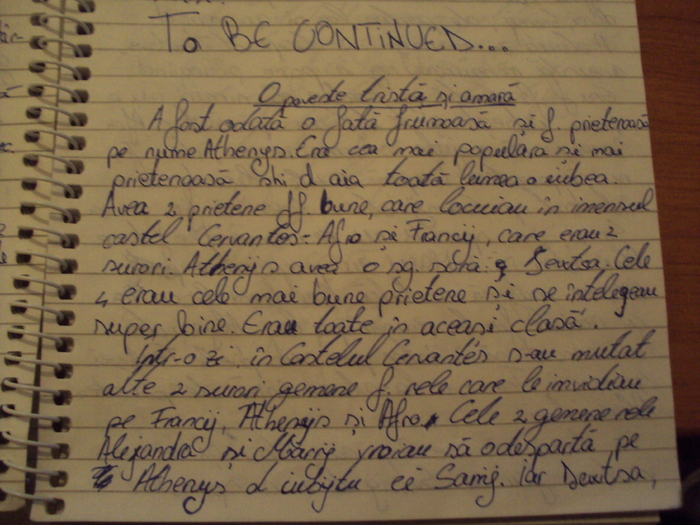 To BE CONTINUED...
O poveste tristă și amară
A fost odată o fată frumoasă și f. prietenoasă
pe nume Athenys. Era cea mai populara și mai
prietenoasă shi d aia toată lumea o iubea.
Avea 2 prietene ff. bune, care locuiau în imensul
castel Cervantés - Afro și Francij, care erau 2
surori. Athenys avea o sg. soră: Deutsa. Cele
4 erau cele mai bune prietene și se intelegeau
super bine. Erau toate în aceasi clasă.
Într-o zi în Castelul Cervantés s-au mutat
alte 2 surori gemene f. rele care le invidiau
pe Francij, Athenys și Afro. Cele 2 gemene rele
Alejandra și Marij vroiau să o despartă pe
Athenys d iubitu ei Samij. Iar Deutsa,